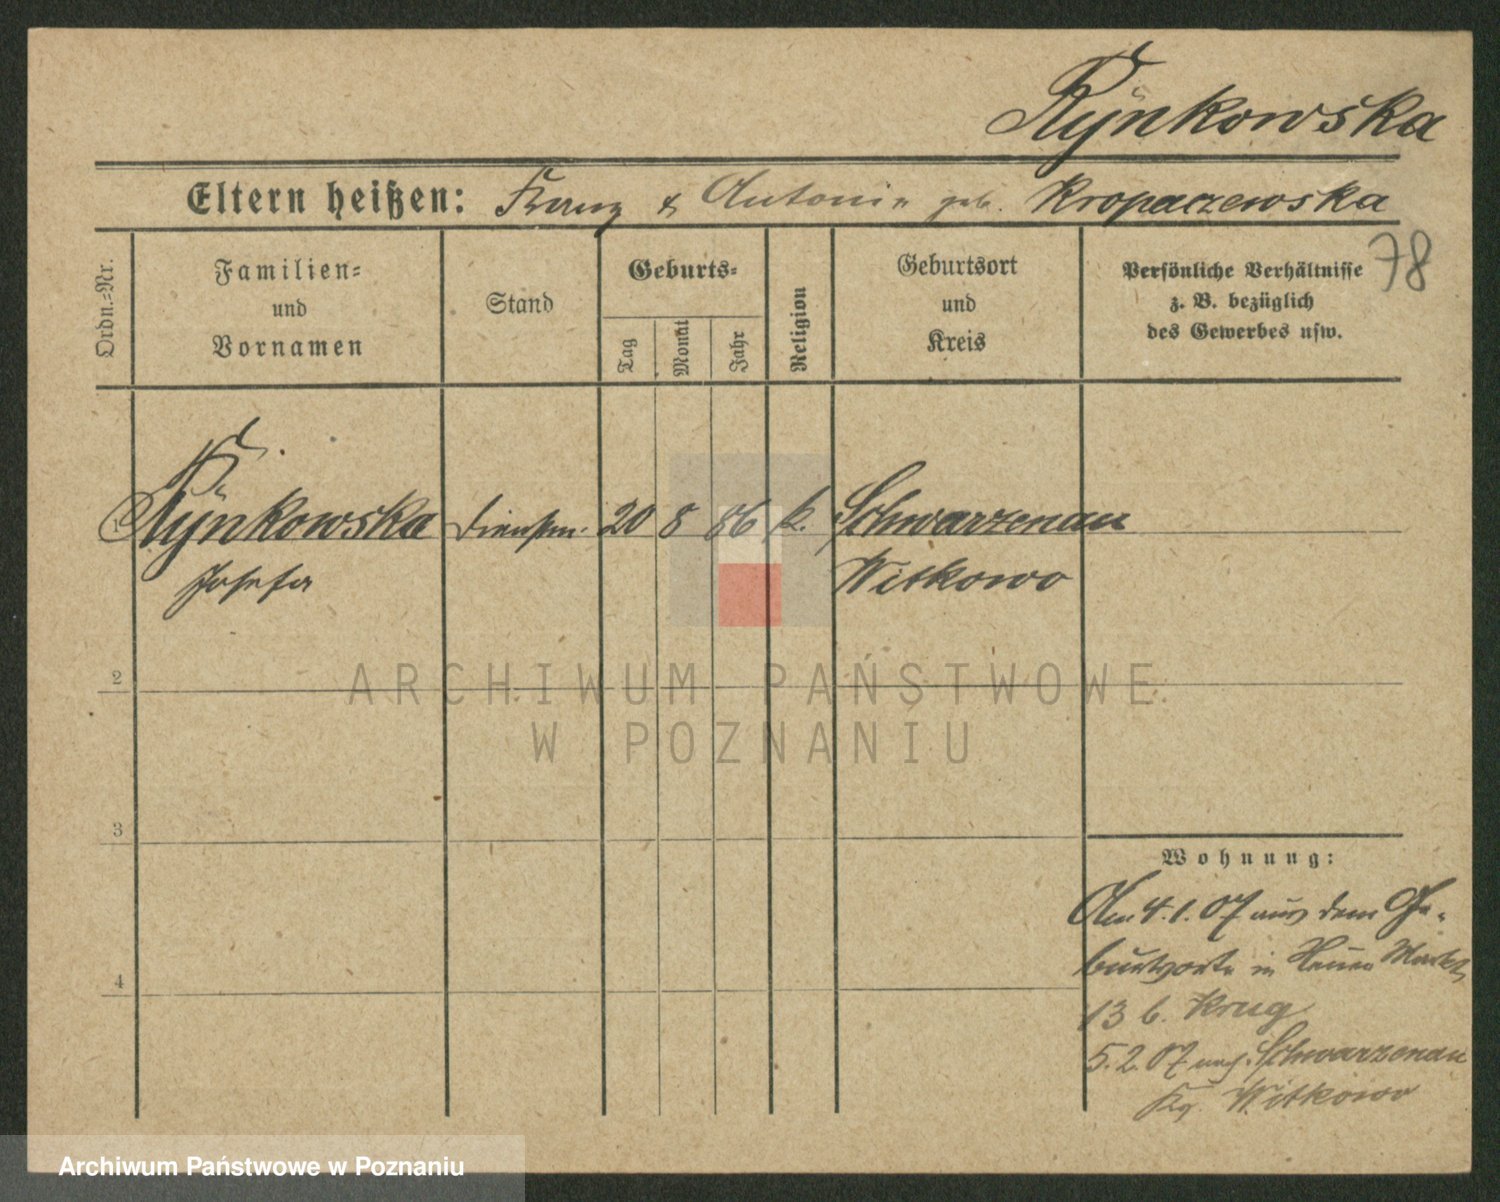 Rÿnkowska
Eltern heißen: Franz & Antonie geb. Kropaczewska
78
Ordn.-Nr.
Familien-
und
Vornamen
Stand
Geburts-
Tag
Monat
Jahr
Religion
Geburtsort
und
Kreis
Persönliche Verhältnisse
z. B. bezüglich
des Gewerbes usw.
1 Rÿnkowska Dienstm. 20 8 86 k. Schwarzenau
Josefa Witkowo
2
3
4
Wohnung:
Am 4.1.07 aus dem Ge-
burtsorte in Neuer Markt
13 b. Krug
5.2.07 nach Schwarzenau
Witkowo
ARCHIWUM PAŃSTWOWE
W POZNANIU
Archiwum Państwowe w Poznaniu